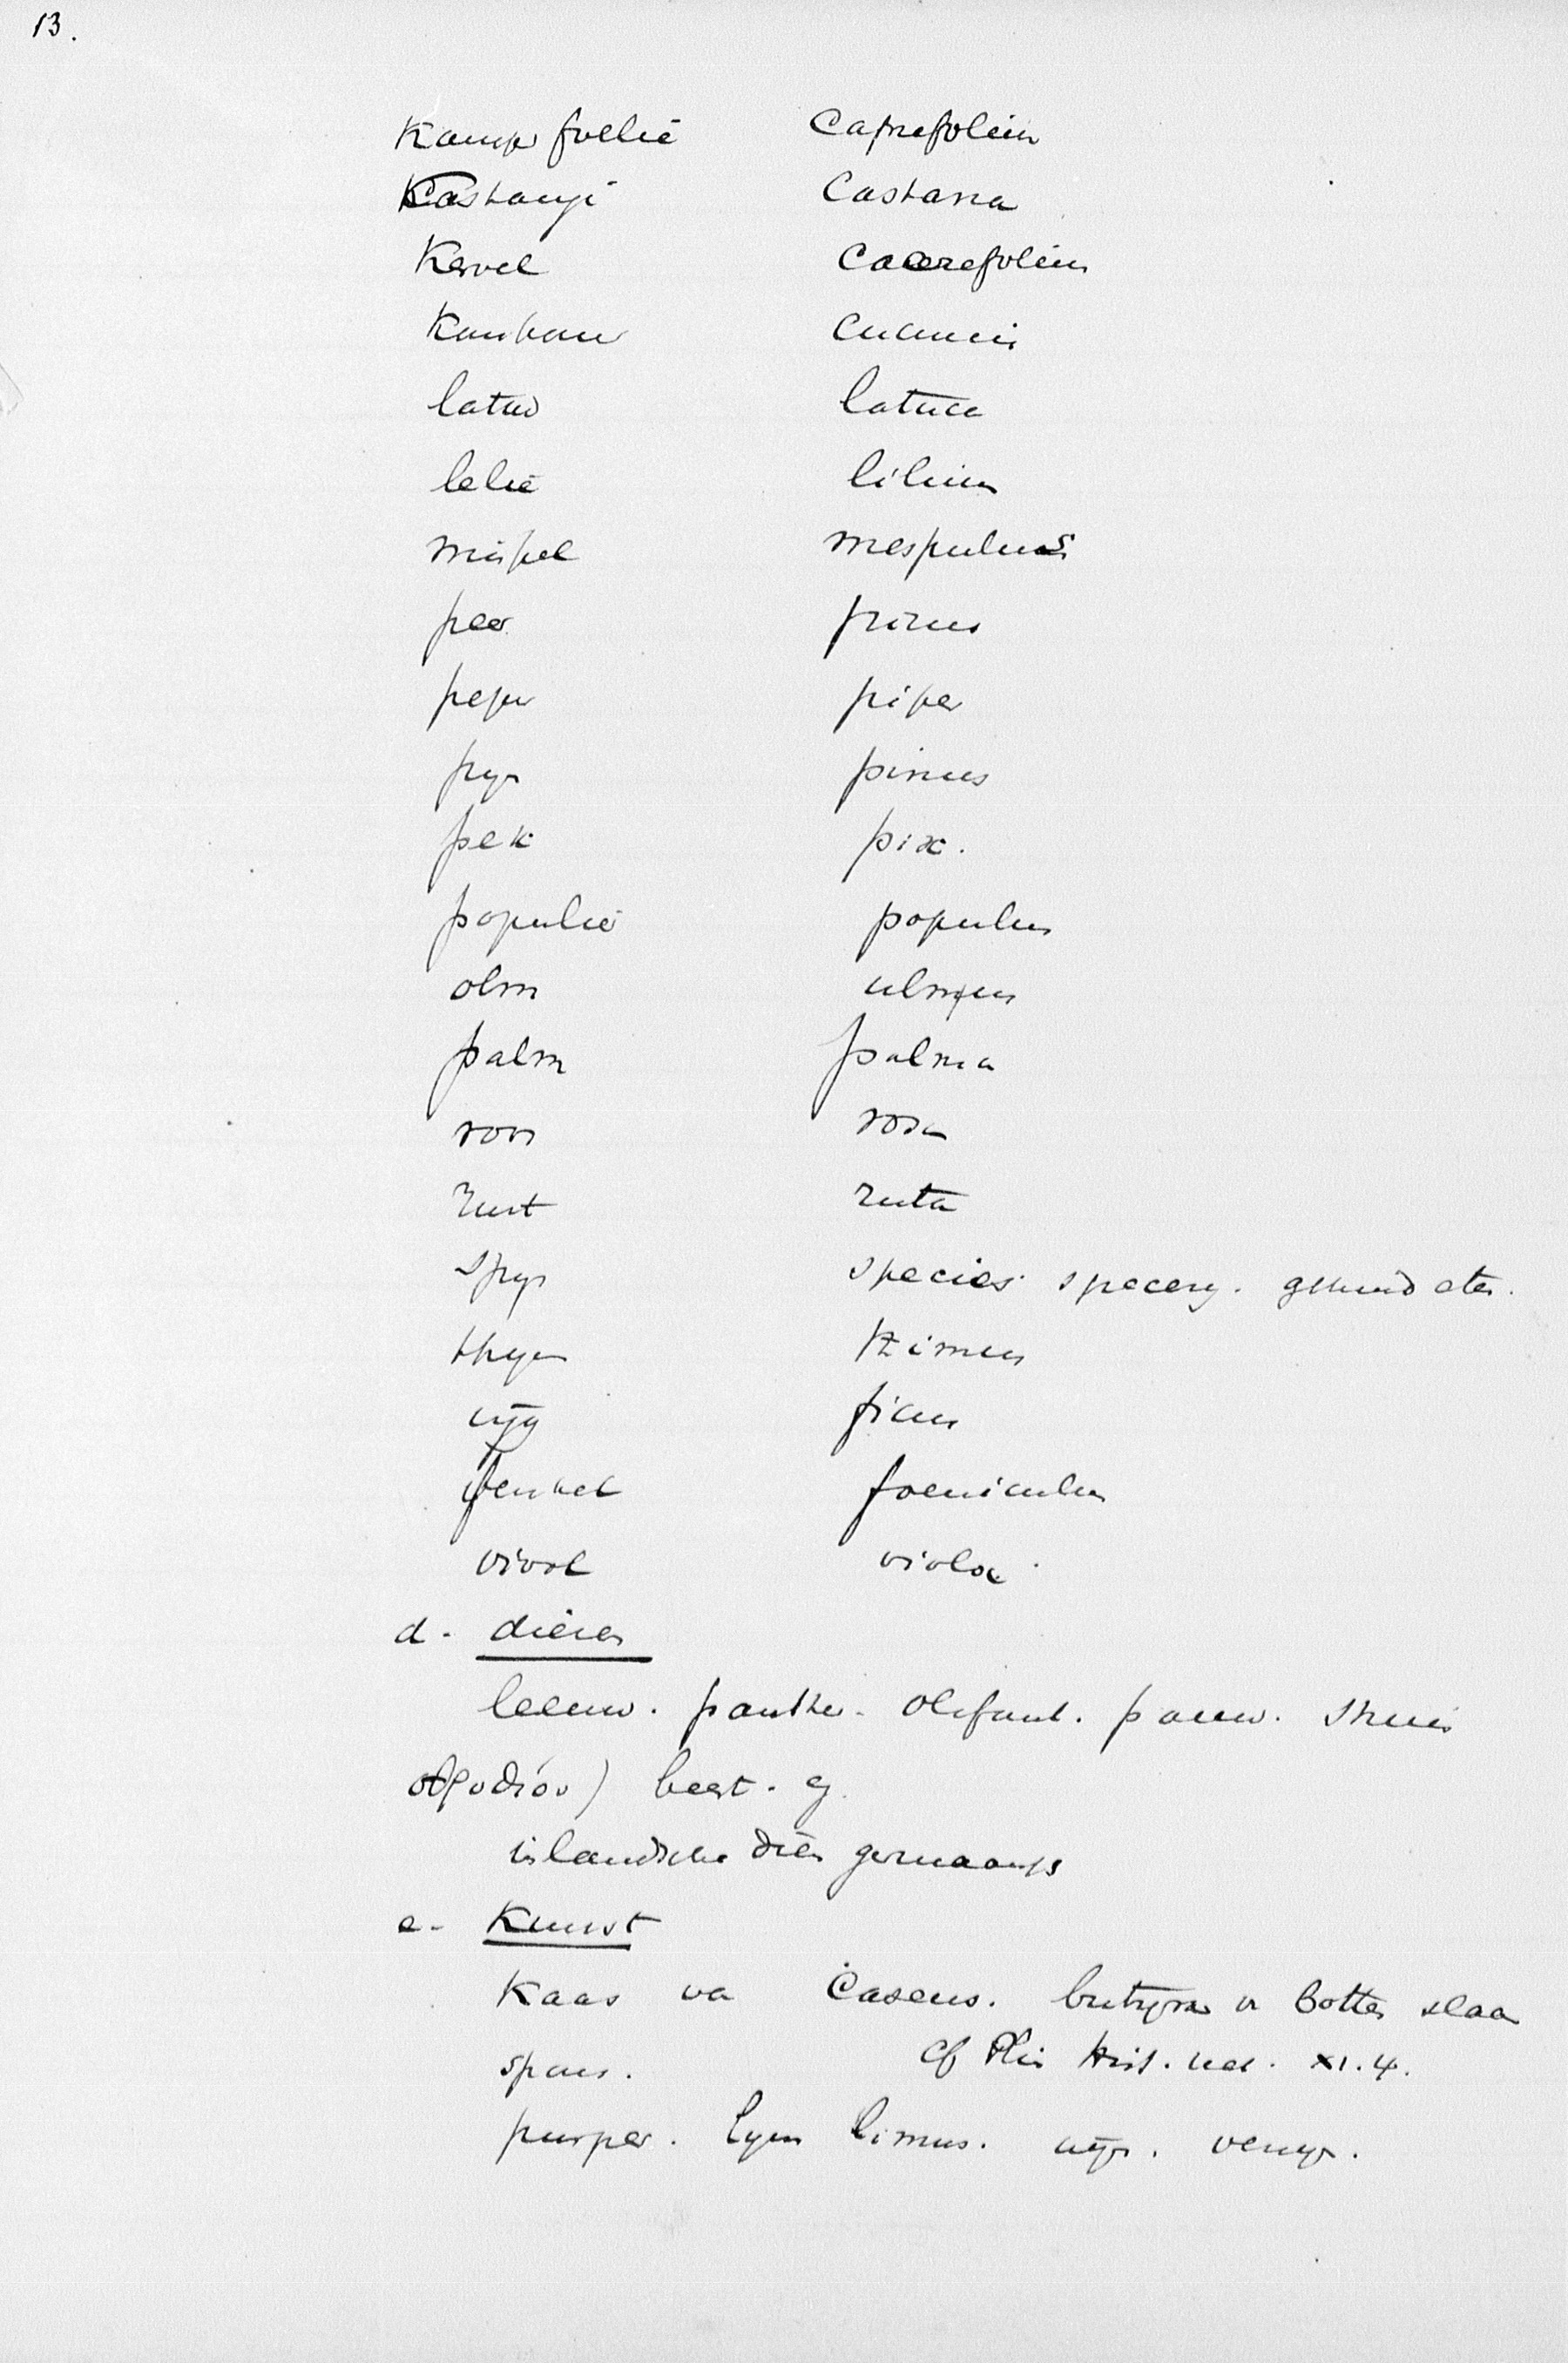 13.
Kamperfoelie Caprefolium
Kastanje Castana
Kervel Caerefolium
Cucumis
latuw latuca
lelie lilium
mispel mespulus
peer pirus
peper piper
pyn pinus
pek pix.
populier populus
olm ulmus
palm palma
roos rosa
ruit ruta
spys species specery. gekruid eten.
thym
vyg ficus
fenkel foeniculum
viool viola
d. dieren
leeuw. panther. olifant. pauw. struis
beest.
inlandsche dier germaansch
e. Kunst
Kaas va Caseus. butyrum v botter slaan
spons. cf Plin Hist. nat. XI. 4.
purper. lym limus. wyn. venyn.